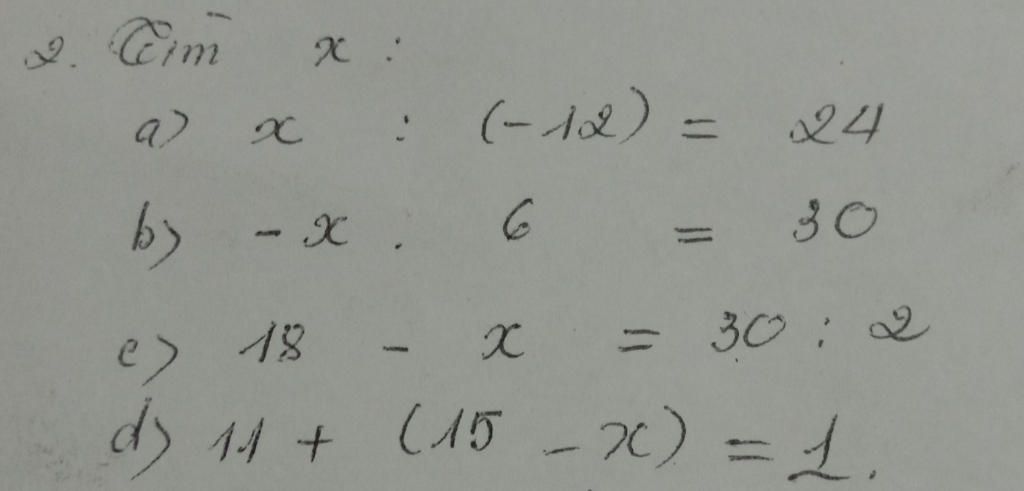 2. Tìm x :
a) x : (-12) = 24
b) -x . 6 = 30
c) 18 - x = 30 : 2
d) 11 + (15 - x) = 1.